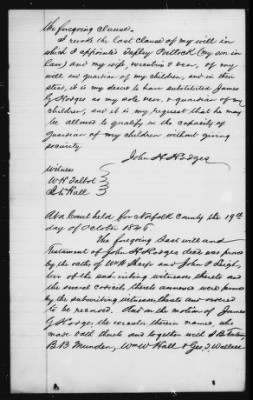 the foregoing clause.
I revoke the last clause of my will in
which I appointed Tapley Portlock (my son in
law) and my wife, executrix & exor, of my
will and guardian of my children, and in their
stead, it is my desire to have substituted James
G Hodges as my sole exor, & guardian of my
children, and it is my request that he may
be allowed to qualify in the capacity of
Guardian of my children without giving
security
John H Hodges
Witness
W H Talbot
Hall
At a Court held for Norfolk County the 19th
day of October 1846
The foregoing Last will and
Testament of John H Hodges decd was proven
by the oaths of Wm B Sharp and John P Leigh,
two of the subscribing witnesses thereto and
the several codicils thereto annexed were proven
by the subscribing witnesses thereto and ordered
to be recorded. And on the motion of James
G Hodges, the executor therein named, who
made oath thereto and together with
B. B Munden, Wm W Hall & Geo. T. Wallace